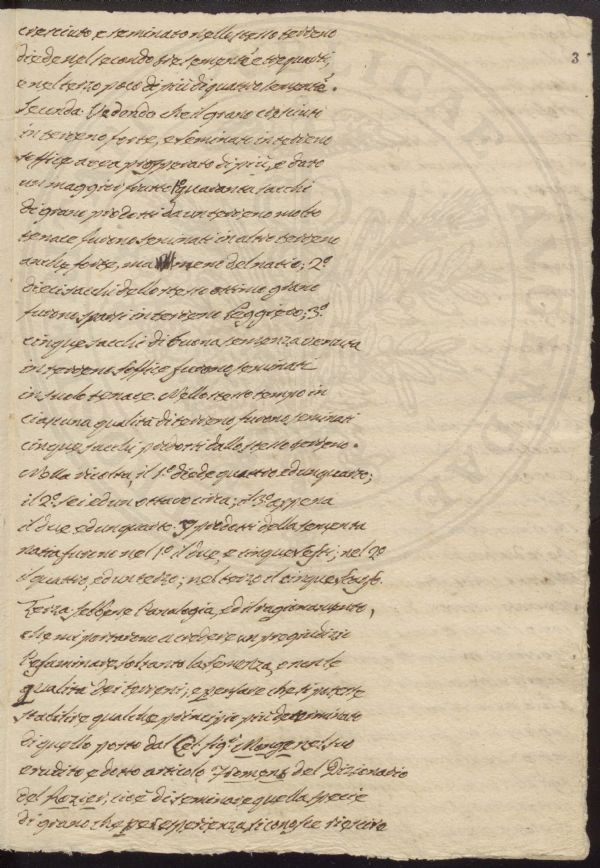 3
cresciuto, e seminato nello stesso terreno
diede nel secondo tre sementa, e tre quarti,
e nel terzo poco di più di quattro sementa.
Seconda. Vedendo che il grano cresciuti
in terreno forte, e seminati in terreno
soffice aveva prosperato di più, e dato
un maggior frutto 1º quaranta sacchi
di grano prodotti da un terreno molto
tenace furono seminati in altro terreno
anche forte, ma meno del natio; 2º
dieci sacchi dello stesso ottimo grano
furono sparsi in terreno leggiero; 3º
cinque sacchi di buona semenza venuta
in terreno soffice furono seminati
in suolo tenace. Nello stesso tempo in
ciascuna qualità di terreno furono seminati
cinque sacchi prodotti dallo stesso terreno.
Nella ricolta, il 1º diede quattro ed un quarto;
il 2º sei ed un ottavo circa; il 3º appena
il due, ed un quarto. I prodotti della sementa
nata furono nel 1º il due, e cinque sesti; nel 2º
il quattro, ed un terzo; nel terzo il cinque
Terza. Sebbene l'analogia, ed il ragionamento,
che mi portarono a credere un pregiudizio
l'esaminare soltanto la semenza, e non le
qualità dei terreni; e pensare che si potesse
stabilire qualche principio più determinato
di quello posto dal Cel. Sigr. Monge nel suo
erudito e dotto articolo Froment del Dizionario
del Rozier; cioè di seminare quella specie
di grano che per esperienza si conosce riescire